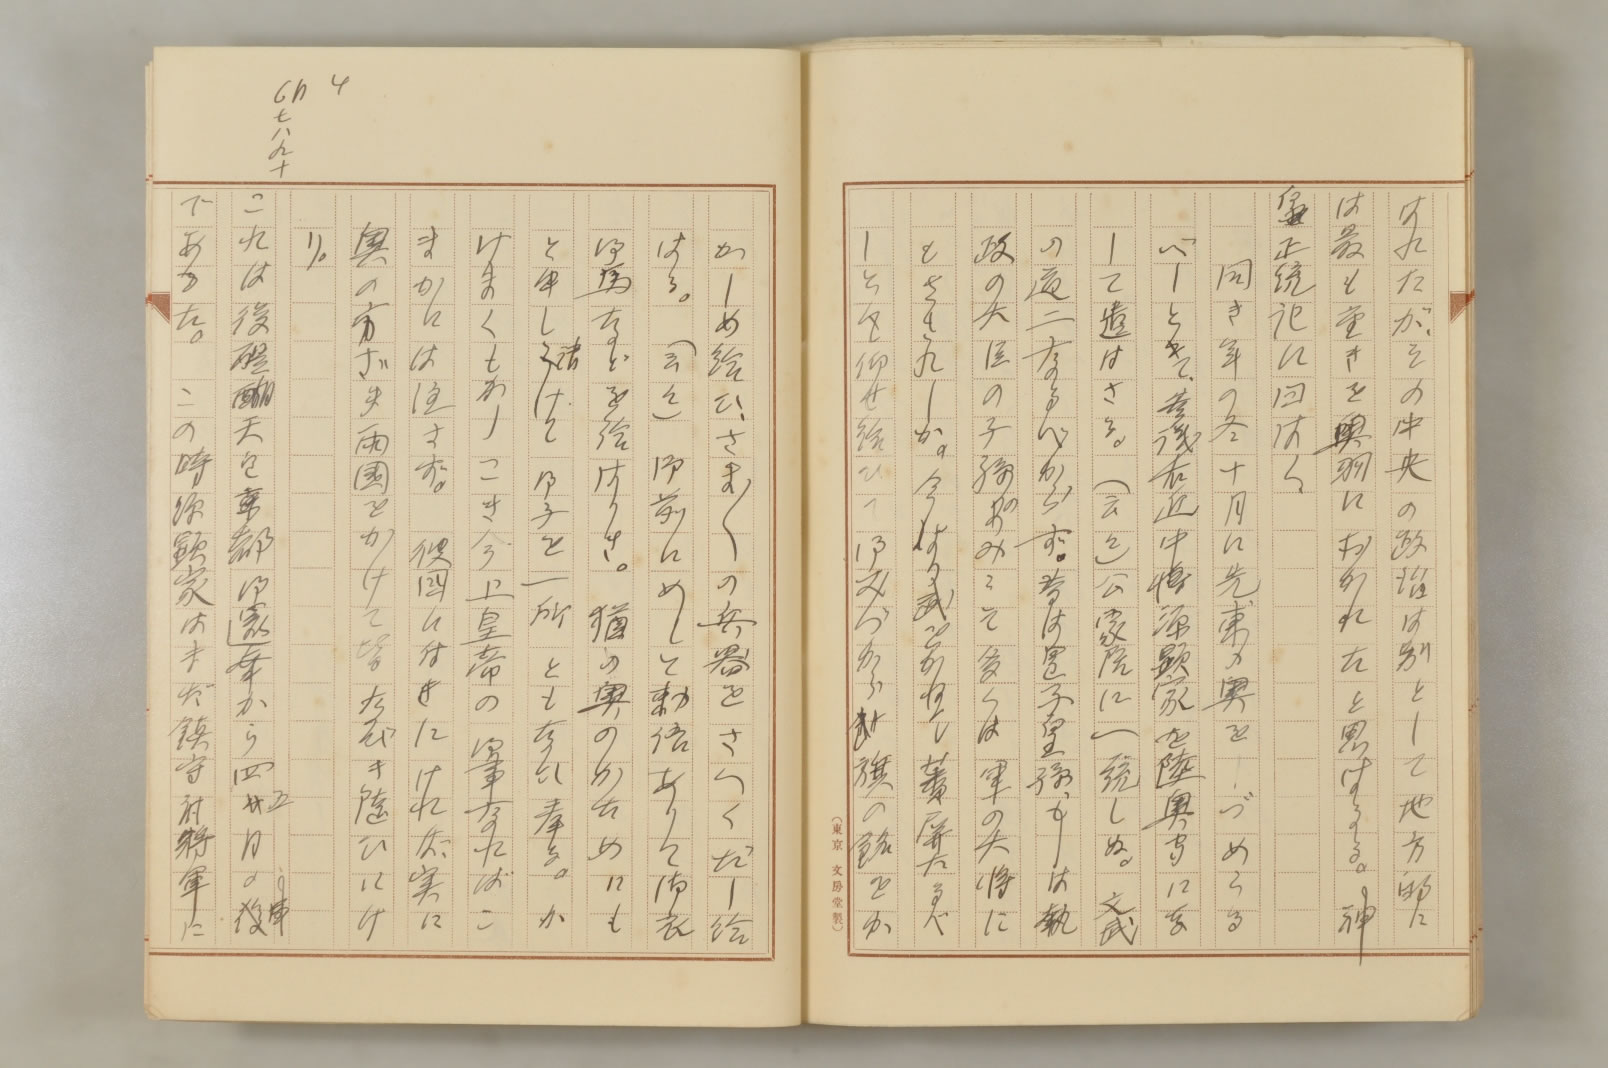 はれたが、その中央の政権は別として地方的に
は最も重きを奥羽におかれたと思はるる。神
皇正統記に曰はく
同き年の冬十月に先東の奥をしづめらる
べしとて、参議右近中将源顕家を陸奥守にな
して遣はさる。(云々)公家既に一統しぬ。文武
の道二なるべからず。昔は皇子皇孫もしは執
政の大臣の子孫のみこそ多くは軍の大将に
もさされしか。今より武をかねて蕃屏たるべ
しとて仰せ給ひて御みづから旗の銘をか
かしめ給ひ、さま〲の兵器をさへくだし給
はる。(云々)御前にめして勅語ありて御衣
御馬などを給はりき。猶の奥のかためにも
と申しうけて御子を一所ともなひ奉る。か
けまくもかしこき今上皇帝の御事なればこ
まかには注さず。彼国につきにければ、実に
奥の方ざま両国をかけて皆なびき随ひにけ
り。
これは後醍醐天皇京都御還幸から四五月の後
であつた。この時源顕家はまだ鎮守府将軍に
Ch 4
七八九十
(東京 文房堂製)